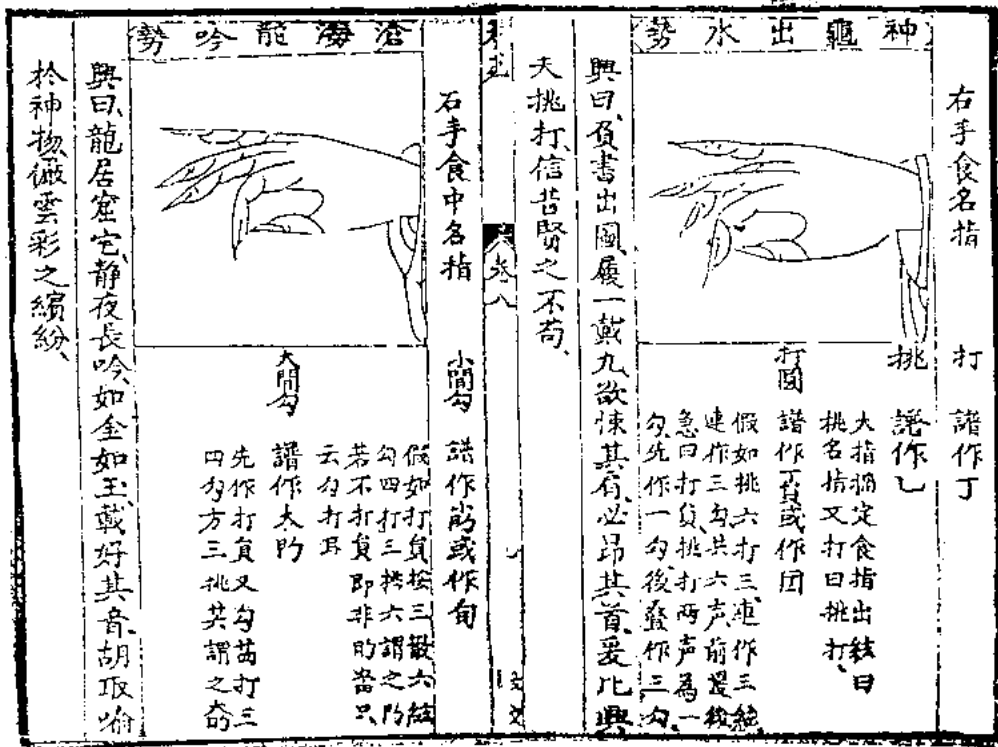 神龜出水勢
右手食名指
打 譜作丁
挑 譜作乚
大指搊定食指出絃曰
挑名指又打曰挑打、
打圓
譜作或作囝
假如挑六打三連作三
連作三勾共六声前慢後
急曰打員、挑打兩声為一
勾、先作一勾、後疊作三勾、
興曰、負書出圖、履一戴九、欲悚其肩、必昂其首、爰比興
夫挑打、信昔賢之不苟、
卷八
滄海龍吟勢
右手食中名指
小間勾 譜作或作旬
假如打員按三散六
勾四打三挑六謂之
若不打員即非的當只
云勾打耳
大間勾
譜作
先作打員又勾四打三
四勾方三挑共謂之
興曰、龍居窟宅、靜夜長吟、如金如玉、載好其音、胡取喻
於神物、儼雲彩之繽紛、